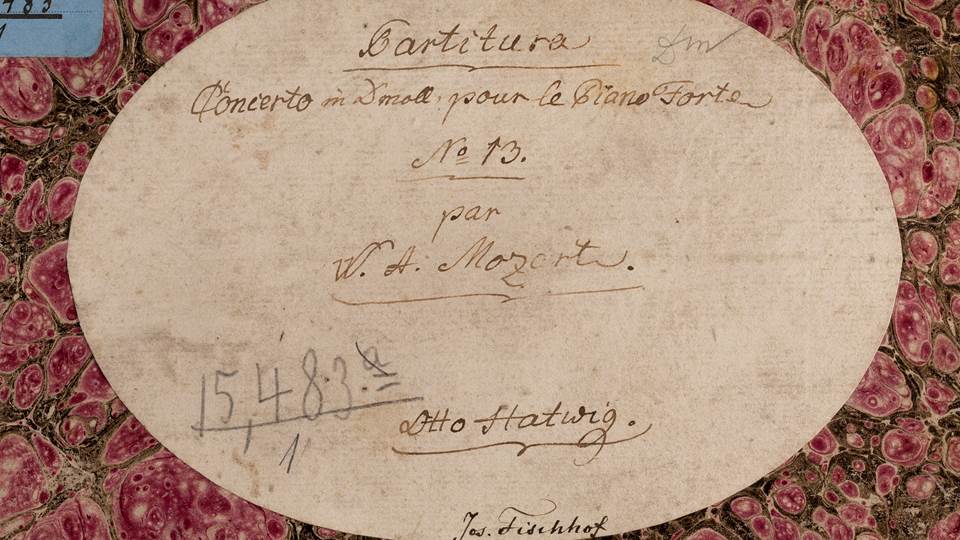 483
1
Partitura
Dm
Concerto in D moll, pour le Piano Forte
No 13.
par
W. A. Mozart.
15,483.a
1
Otto Hatwig.
Jos. Fischhof